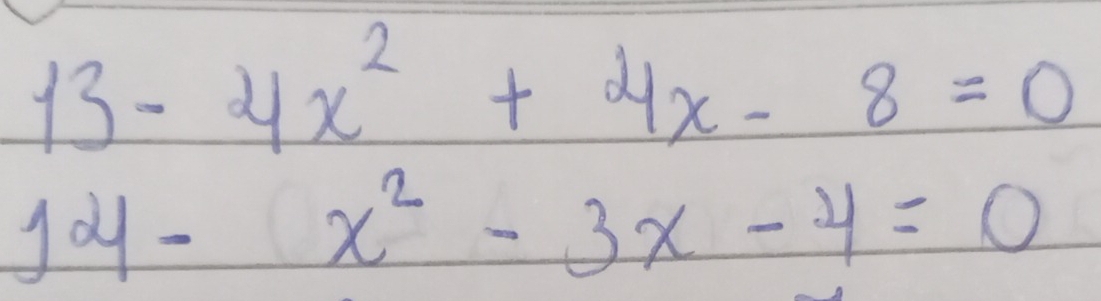 13- 4x² + 4x - 8 = 0
14- x² - 3x - 4 = 0